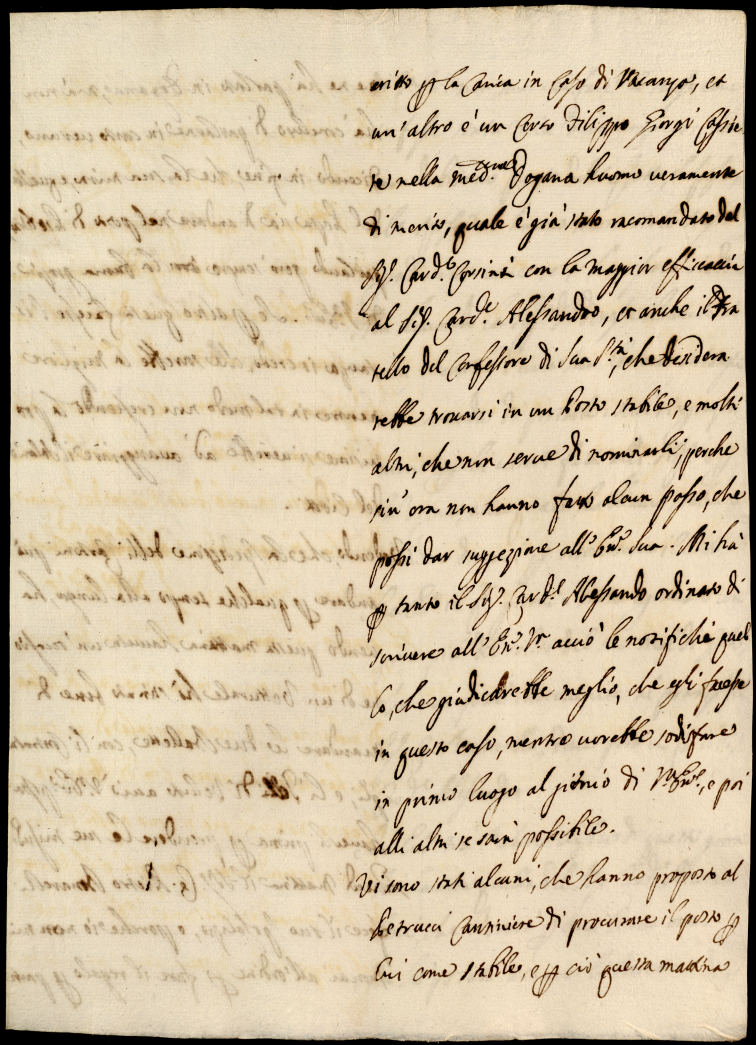 critto p la Carica in Caso di Vacanza, et
un' altro é un Certo Filippo Giorgi Cassie
re nella med.ma Dogana huomo veramente
di merito, quale é già stato racomandato dal
Sig.r Card.le Corsini con la maggior efficaccia
al Sig.r Card.le Alessandro, et anche il Fra
tello del Confessore di Sua S.tà, che desidera
rebbe trovarsi in un Posto stabile, e molti
altri, che non serve di nominarli, perche
sin' ora non hanno fatto alcun passo, che
possi dar suggezione all' Em.a Sua. Mi hà
p tanto il Sig.r Card.le Alessandro ordinato di
scrivere all' Em.a V.a acciò le notifichi quel
lo, che giudicarebbe meglio, che egli facesse
in questo caso, mentre vorebbe sodisfare
in primo luogo al genio di V.a Em.a, e poi
alli altri se sarà possibile.
Vi sono stati alcuni, che hanno proposto al
Petrucci Cantiniere di procurare il posto p
lui come stabile, e p ciò questa mattina